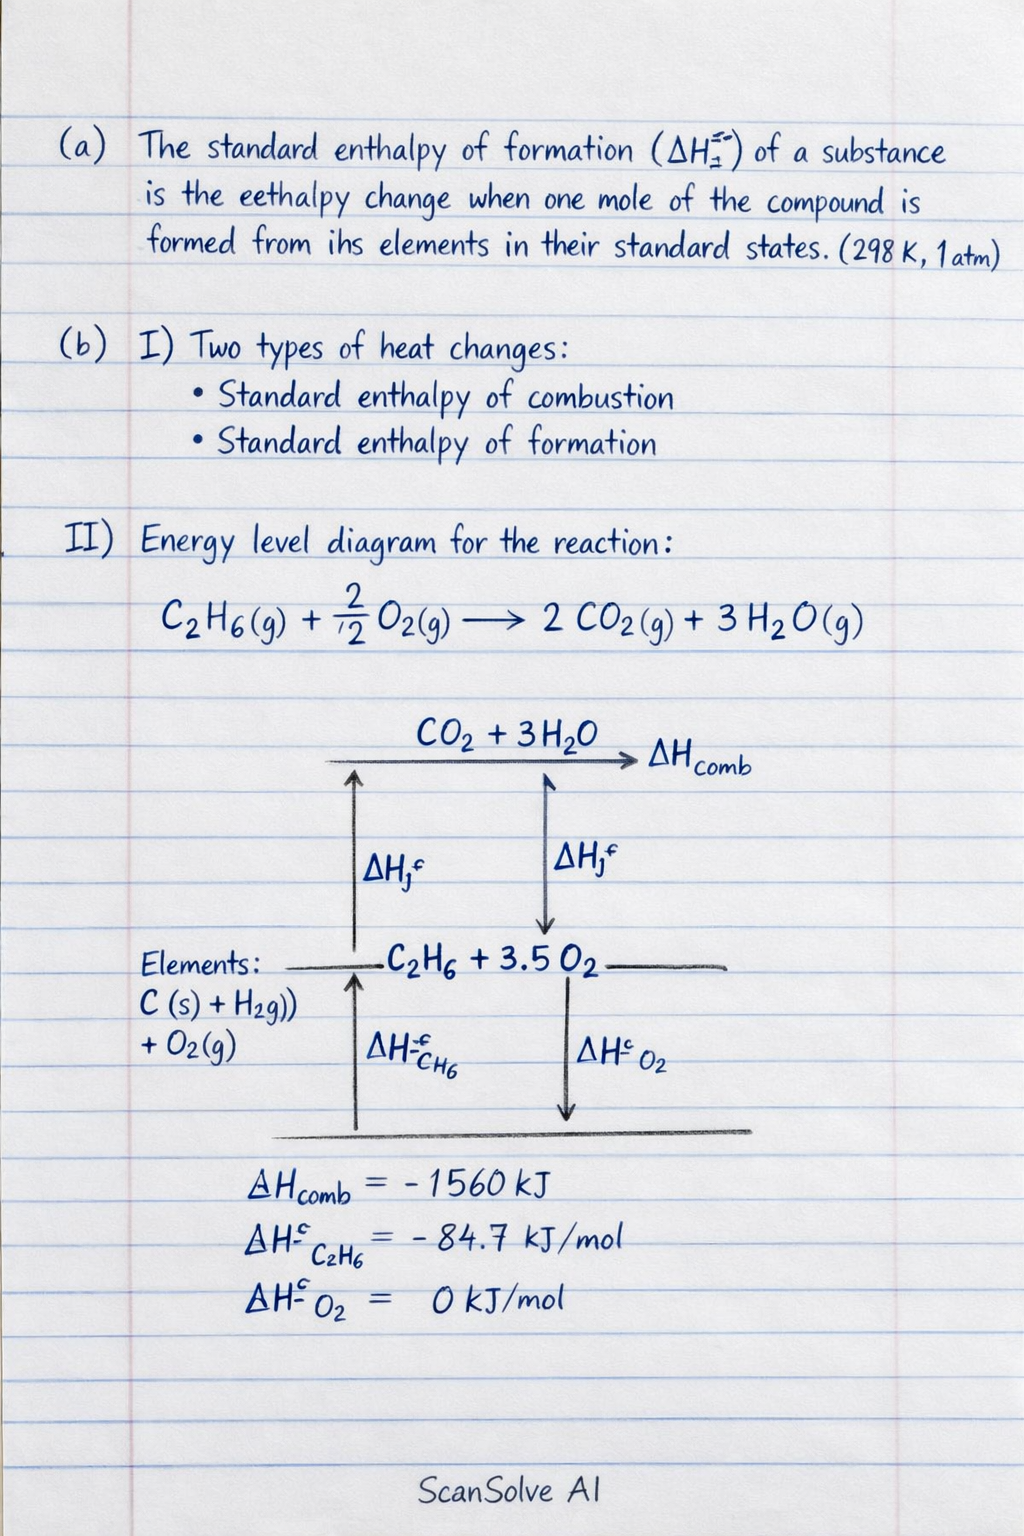 (a) The standard enthalpy of formation (ΔH) of a substance
is the eethalpy change when one mole of the compound is
formed from ihs elements in their standard states. (298 K, 1 atm)
(b) I) Two types of heat changes:
• Standard enthalpy of combustion
• Standard enthalpy of formation
II) Energy level diagram for the reaction:
C₂H₆(g) + 2/12 O₂(g) ⟶ 2 CO₂(g) + 3 H₂O(g)
CO₂ + 3H₂O
ΔHcomb
ΔHⱼᶜ
ΔHⱼᶜ
Elements:
C₂H₆ + 3.5 O₂
C (s) + H₂g))
+ O₂(g)
ΔHᶜ CH₆
ΔHᶜ O₂
ΔHcomb = - 1560 kJ
ΔHᶜ C₂H₆ = - 84.7 kJ/mol
ΔHᶜ O₂ = 0 kJ/mol
ScanSolve AI